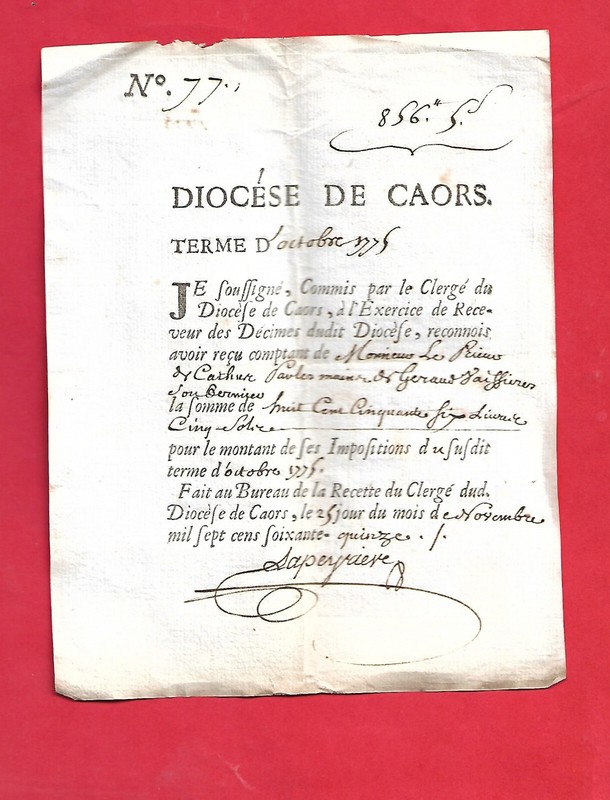 Nº. 77.
856.ᵗᵗ 5.ˢ
DIOCÉSE DE CAORS.
TERME D'octobre 1775
JE soussigné, Commis par le Clergé du
Diocèse de Caors, à l'Exercice de Rece-
veur des Décimes dudit Diocèse, reconnois
avoir reçu comptant de Monsieur Le Prieur
de Cathus Par les mains de Geraud Vaissieres
son fermier
la somme de huit Cent Cinquante six Livres
Cinq Sols
pour le montant de ses Impositions du susdit
terme d'octobre 1775.
Fait au Bureau de la Recette du Clergé dud.
Diocèse de Caors, le 25 jour du mois de Novembre
mil sept cens soixante-quinze ./.
Lapeyriere